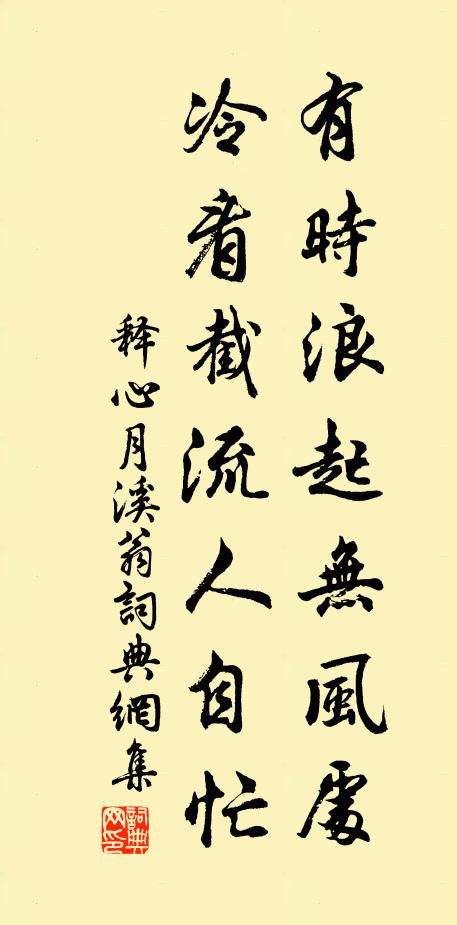 有時浪起無風處
冷看截流人自忙
释心月溪翁詞典網集
詞典网印